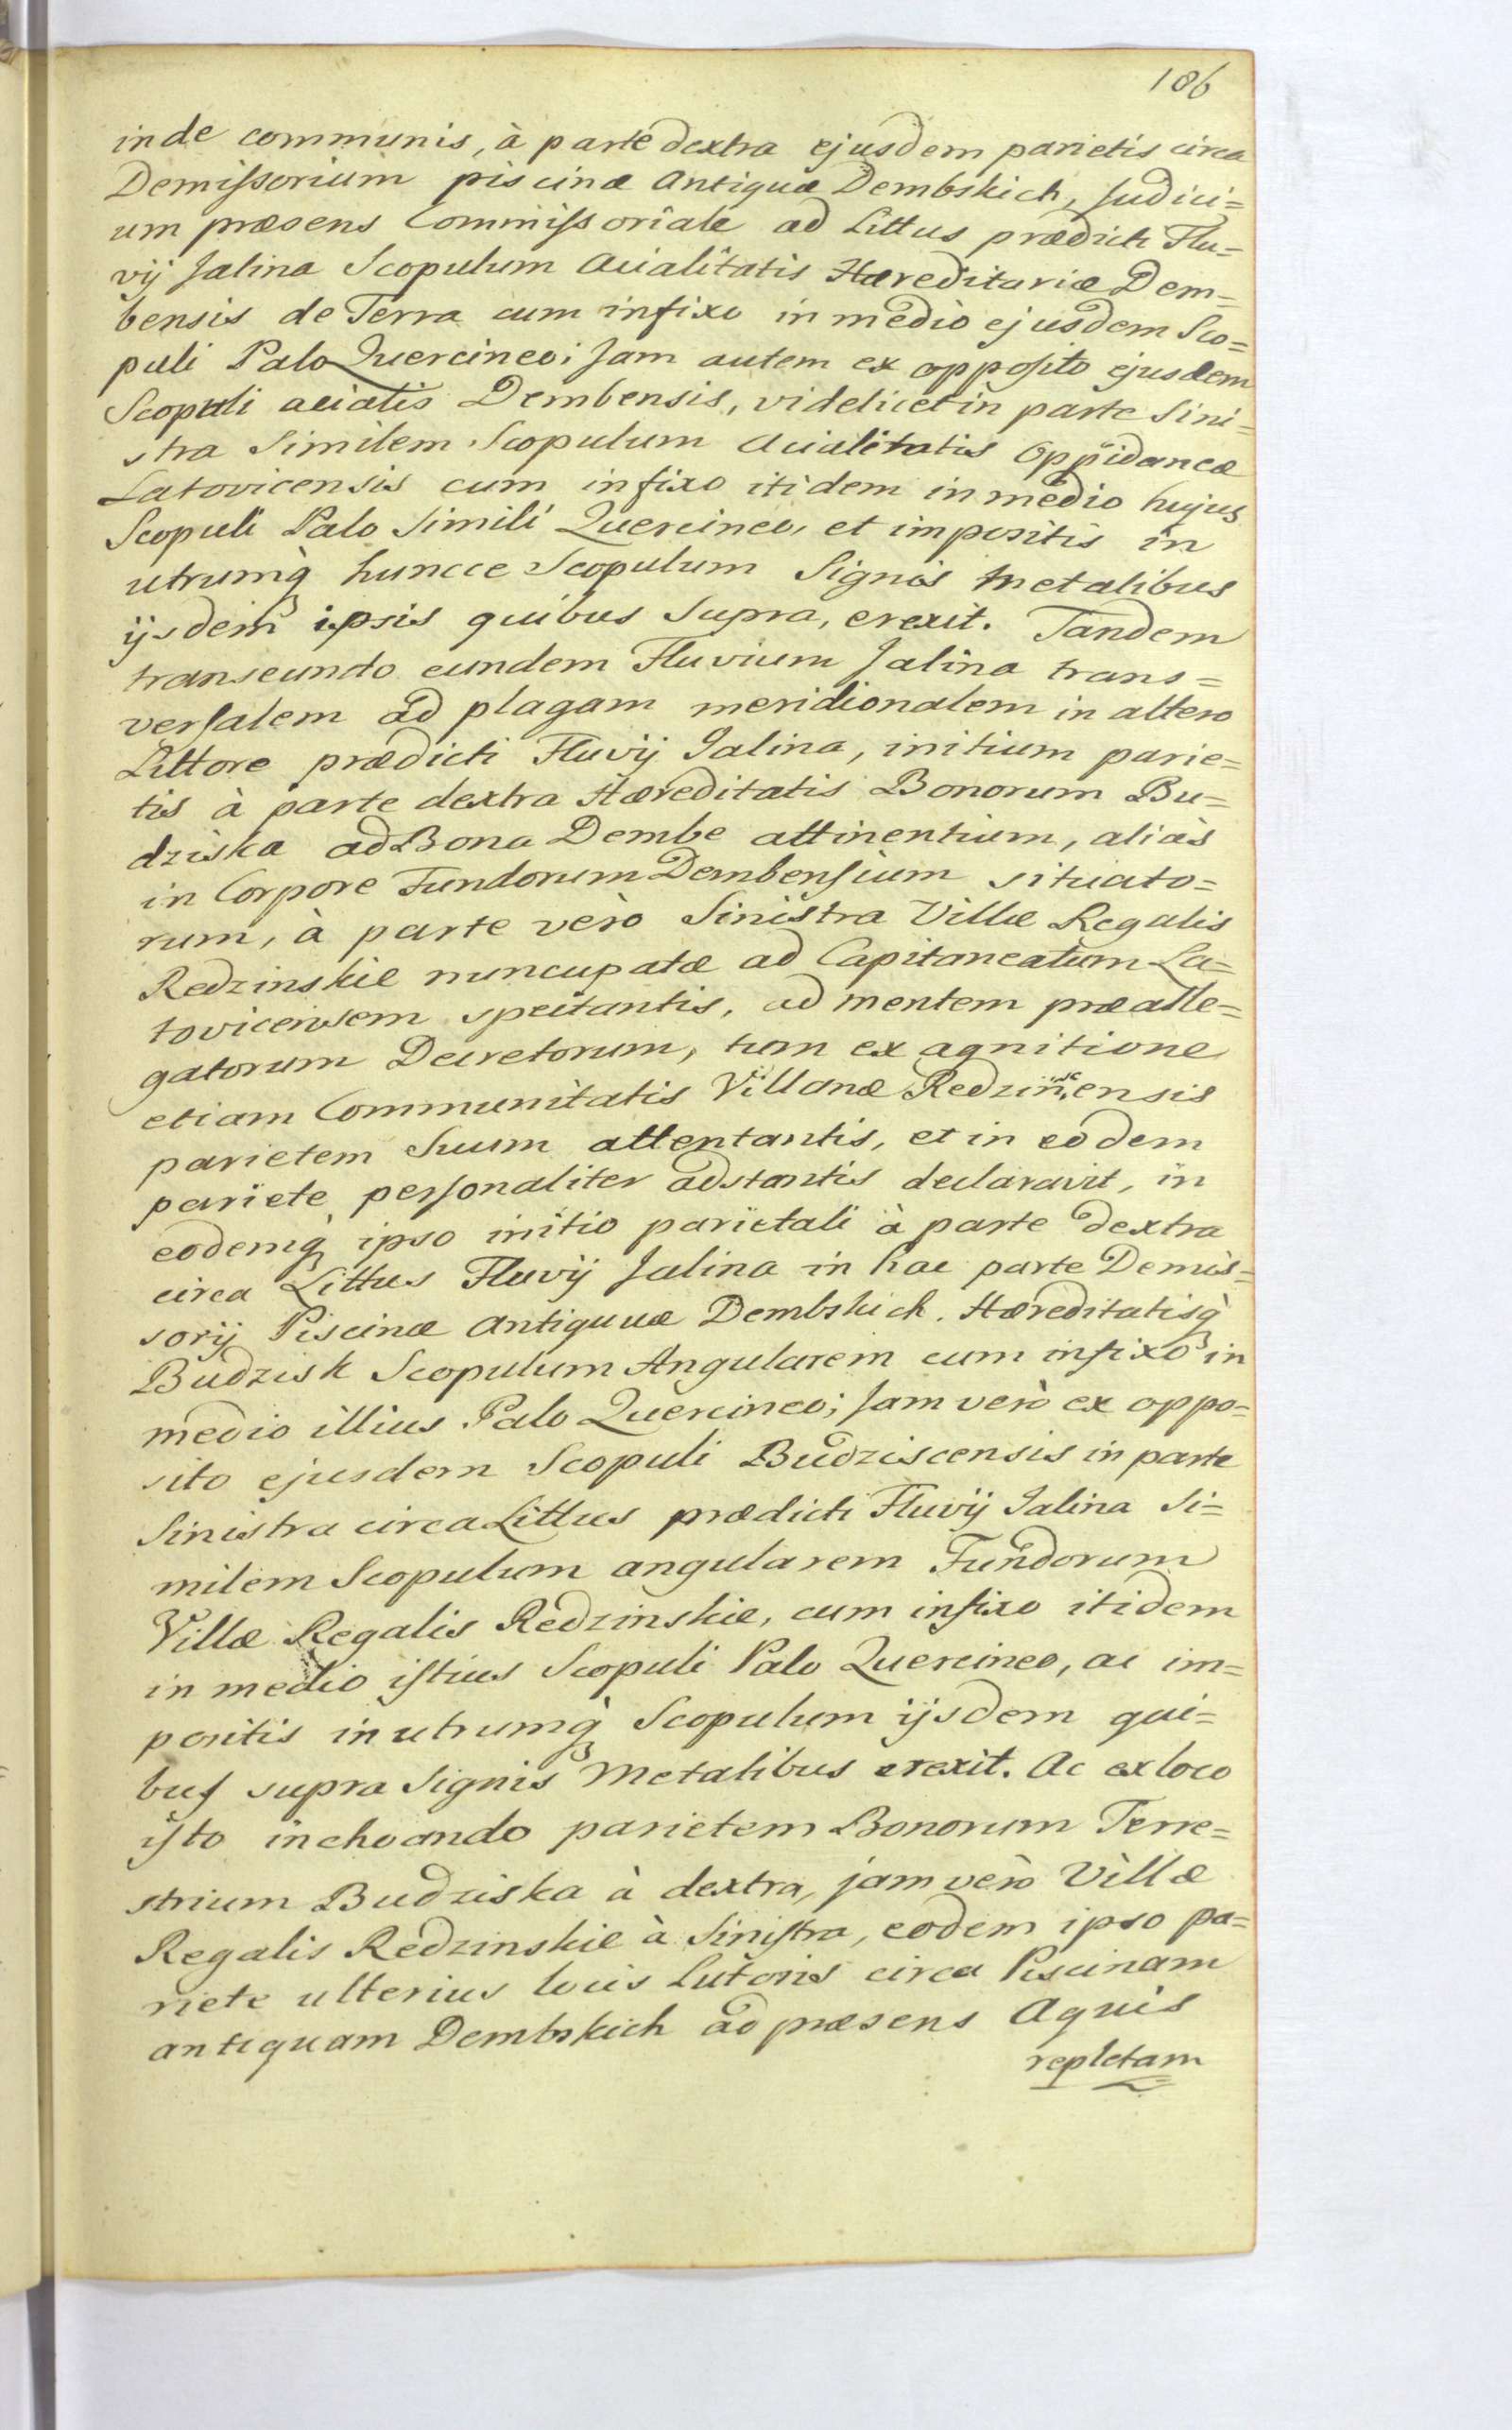 186
inde communis, à parte dextra ejusdem parietis circa
Demissorium piscinæ Antiquæ Dembskich, Judici=
um præsens Commissoriale ad Littus prædicti Flu=
vij Jalina Scopulum Acialitatis Hæreditariæ Dem=
bensis de Terra cum infixo in medio ejusdem Sco=
puli Palo Quercineo; Jam autem ex opposito ejusdem
Scopuli acialis Dembensis, videlicet in parte Sini=
stra Similem Scopulum Acialitatis Oppidanæ
Latovicensis cum infixo itidem in medio hujus
Scopuli Palo Simili Quercineo, et impositis in
utrumq̀ huncce Scopulum Signis Metalibus
ijsdem ipsis quibus Supra, erexit. Tandem
transeundo eundem Fluvium Jalina trans=
versalem ad plagam meridionalem in altero
Littore prædicti Fluvij Jalina, initium parie=
tis à parte dextra Hæreditatis Bonorum Bu=
dziska ad Bona Dembe attinentium, aliàs
in Corpore Fundorum Dembensium situato=
rum, à parte verò Sinistra Villæ Regalis
Redzinskie nuncupatæ ad Capitaneatum La=
tovicensem spectantis, ad mentem præalle=
gatorum Decretorum, tum ex agnitione
etiam Communitatis Villanæ Redzinscensis
parietem Suum attentantis, et in eodem
pariete personaliter adstantis declaravit, in
eodemq̀ ipso initio parietali à parte dextra
circa Littus Fluvij Jalina in hac parte Demis=
sorij Piscinæ Antiquuæ Dembskich. Hæreditatisq̀
Budzisk Scopulum Angularem cum infixo in
medio illius Palo Quercineo; Jam verò ex oppo=
sito ejusdem Scopuli Budziscensis in parte
Sinistra circa Littus prædicti Fluvij Jalina Si=
milem Scopulum angularem Fundorum
Villæ Regalis Redzinskie, cum infixo itidem
in medio istius Scopuli Palo Quercineo, ac im=
positis in utrumq̀ Scopulum ijsdem qui=
bus supra Signis Metalibus erexit. Ac ex loco
isto inchoando parietem Bonorum Terre=
strium Budziska à dextra, jam verò Villæ
Regalis Redzinskie à Sinistra, eodem ipso pa=
riete ulterius locis Lutosis circa Piscinam
antiquam Dembskich ad præsens Aquis
repletam